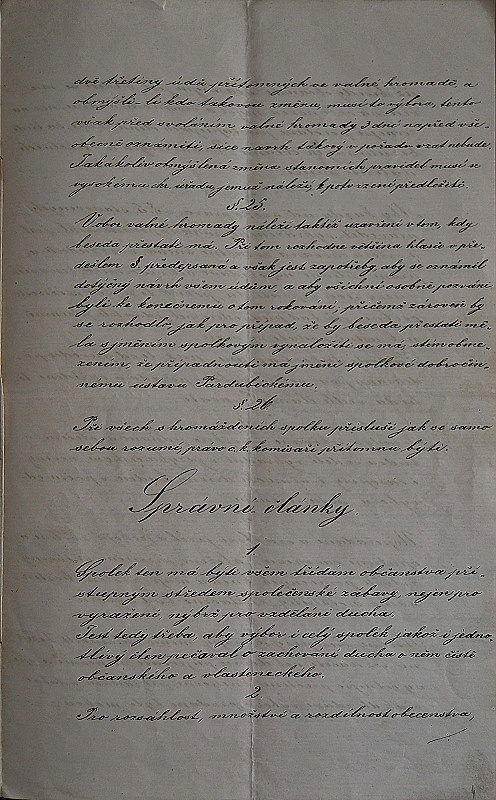 dvě třetiny údů přítomných ve valné hromadě, a
obmýšlí-li kdo takovou změnu, musí to výboru, tento
však před svoláním valné hromady 3 dni napřed vše-
obecně oznámiti, sice návrh takový v pořadu vzat nebude.
Jakákoliv obmýšlená změna stanovních pravidel musí se
vysokému ckr. úřadu, jemuž náleží, k potvrzení předložiti.
§. 25.
V obor valné hromady náleží taktéž uzavření v tom, kdy
beseda přestati má. Při tom rozhodne většina hlasů v pře-
dešlem §. předepsaná a však jest zapotřeby, aby se oznámil
dotýčný návrh všem údům, a aby všichni osobně pozváni
byli ke konečnému o tom rokování, přičemž zároveň by
se rozhodlo, jak pro případ, že by beseda přestati mě-
la s jměním spolkovým vynaložiti se má, s tím obme-
zením, že připadnouti má jmění spolkové dobročin-
nému ústavu Pardubickému.
§. 26.
Při všech shromážděních spolku přísluší jak se samo
sebou rozumí, právo c. k. komisaři přítomnu býti.
Správní články.
1.
Spolek ten má býti všem třídám občanstva pří-
stupným středem společenské zábavy, nejen pro
vyražení, nýbrž pro vzdělání ducha.
Jest tedy třeba, aby výbor i celý spolek jakož i jedno-
tlivý člen pečoval o zachování ducha o něm čistě
občanského a vlasteneckého.
2.
Pro rozsáhlost, množství a rozdílnost obecenstva,